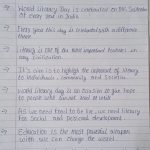 → World Literacy Day is celebrated on 8th September of every year in India
→ Every year this day is celebrated with a different theme
→ Literacy is one of the most important factors in any civilization
→ It's aim is to highlight the importance of literacy to individuals, community and societies
→ World literacy day is an occasion to give hope to people who cannot read or write
→ As we need food to be live, we need literacy for Social and personal development
→ Education is the most powerful weapon with we can change the world